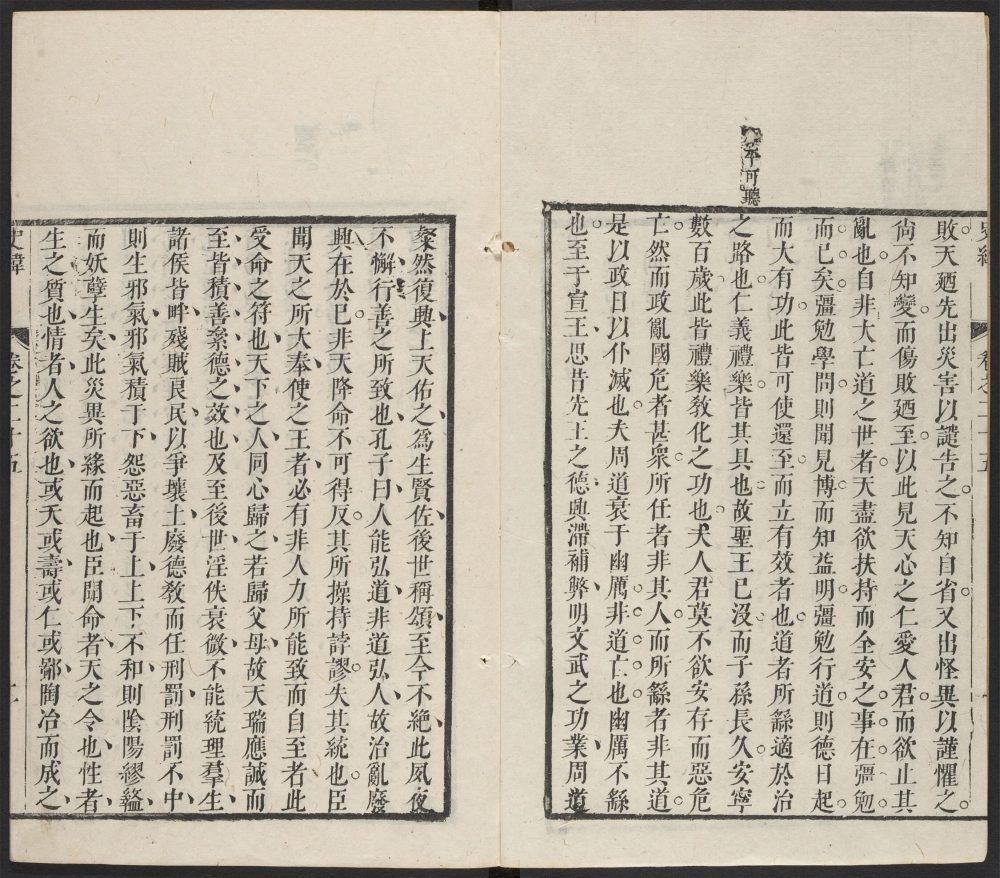 敗天廼先出災害以譴告之不知自省又出怪異以謹懼之
尙不知變而傷敗廼至以此見天心之仁愛人君而欲止其
亂也自非大亡道之世者天盡欲扶持而全安之事在彊勉
而已矣彊勉學問則聞見博而知益明彊勉行道則德日起
而大有功此皆可使還至而立有效者也道者所繇適於治
之路也仁義禮樂皆其具也故聖王已沒而子孫長久安寧
數百歲此皆禮樂敎化之功也夫人君莫不欲安存而惡危
亡然而政亂國危者甚衆所任者非其人而所繇者非其道
是以政日以仆滅也夫周道衰于幽厲非道亡也幽厲不繇
也至于宣王思昔先王之德興滯補弊明文武之功業周道
可聽
粲然復興上天佑之爲生賢佐後世稱頌至今不絕此夙夜
不懈行善之所致也孔子曰人能弘道非道弘人故治亂廢
興在於已非天降命不可得反其所操持誖謬失其統也臣
聞天之所大奉使之王者必有非人力所能致而自至者此
受命之符也天下之人同心歸之若歸父母故天瑞應誠而
至皆積善絫德之效也及至後世淫佚衰微不能統理羣生
諸侯背畔殘賊良民以爭壤土廢德敎而任刑罰刑罰不中
則生邪氣邪氣積于下怨惡畜于上上下不和則陰陽繆盭
而妖孽生矣此災異所緣而起也臣聞命者天之令也性者
生之質也情者人之欲也或夭或壽或仁或鄙陶冶而成之
史緯
卷之二十五